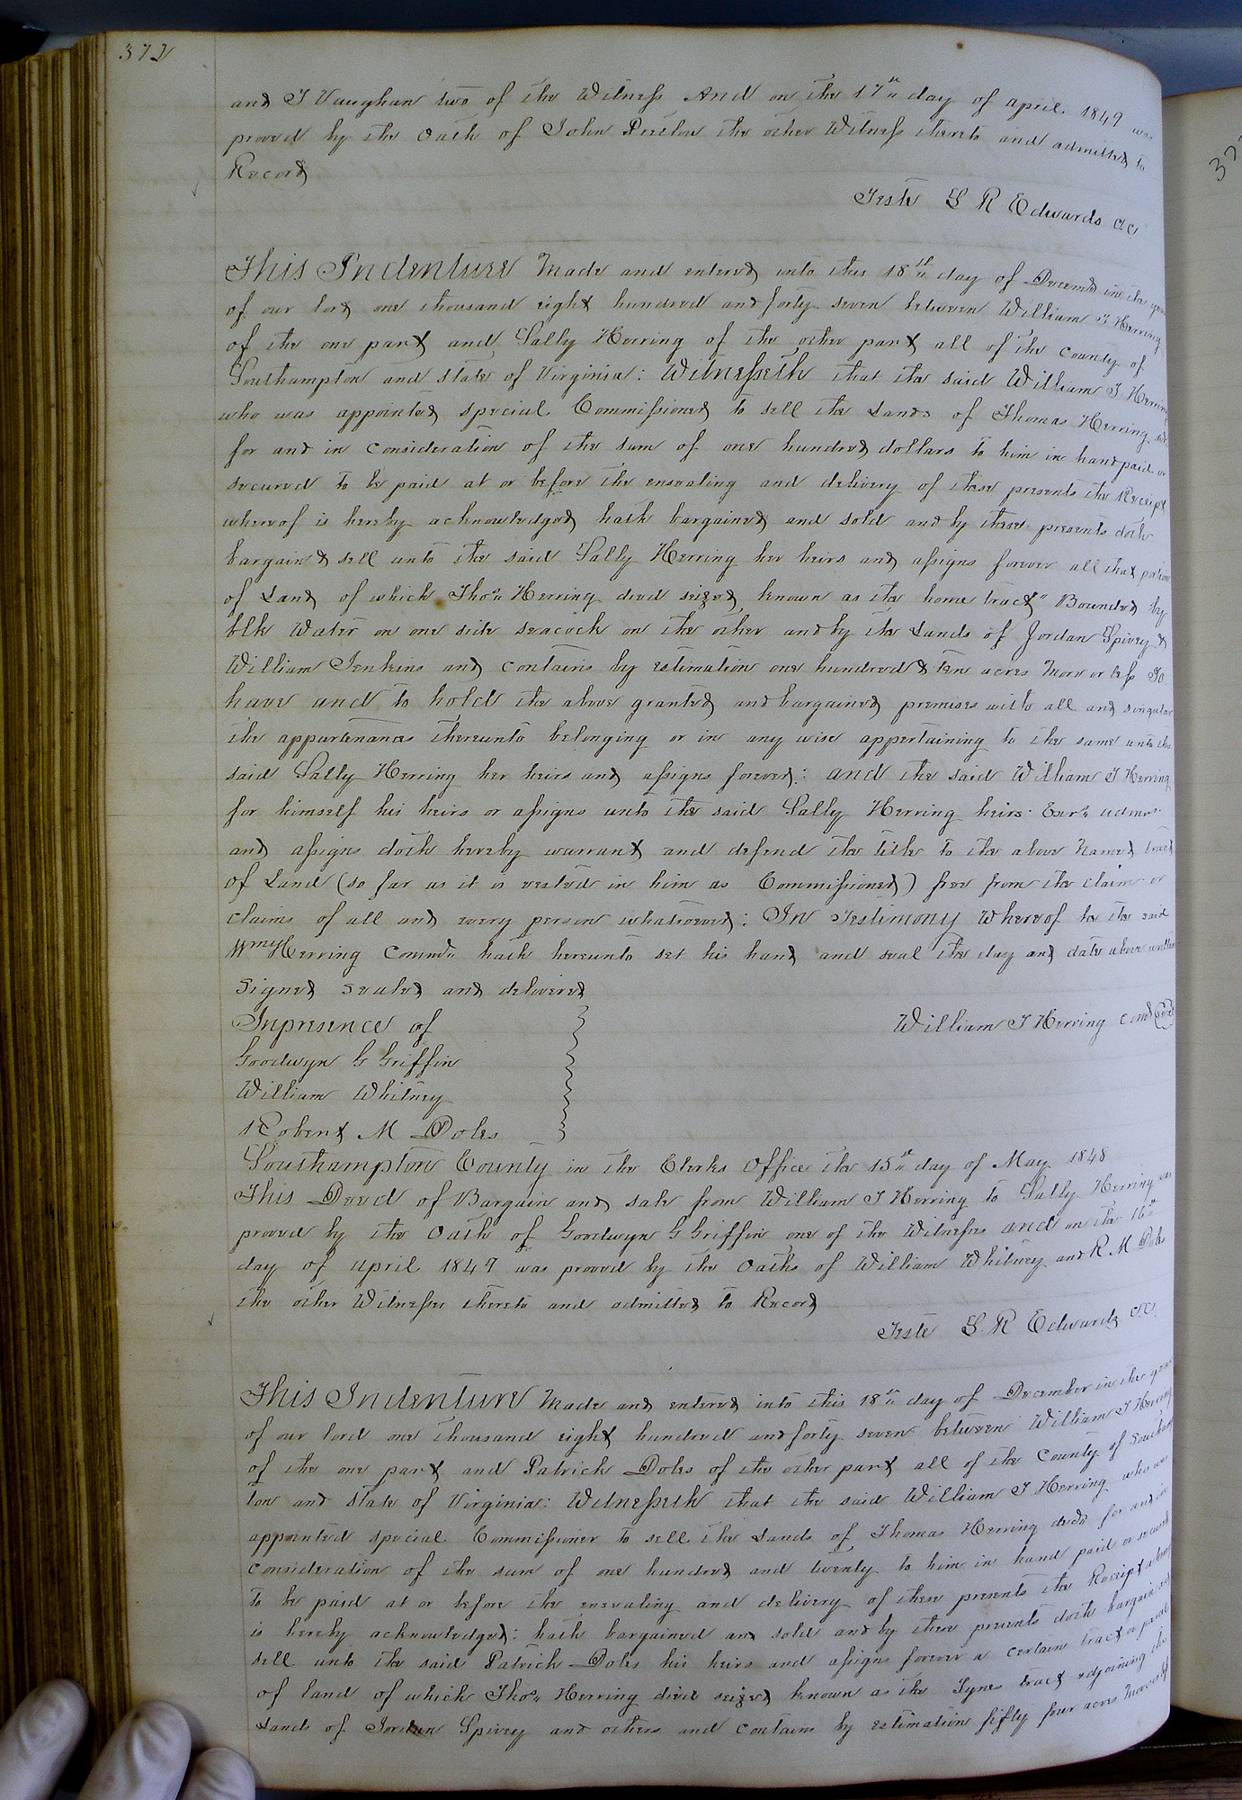 372
and T Vaughan two of the Witness And on the 17th day of april 1849 was
proved by the Oath of John the other Witness thereto and admitted to
Record
Teste L R Edwards CC
This Indenture Made and entered into this 18th day of Decemb in the year
of our lord one thousand eight hundred and forty seven between William J Herring
of the one part and Sally Herring of the other part all of the County of
Southampton and state of Virginia: Witnesseth that the said William J Herring
who was appointed special Commissioned to sell the Lands of Thomas Herring
for and in consideration of the sum of one hundred dollars to him in hand paid or
secured to be paid at or before the ensealing and delivery of these presents the Receipt
whereof is hereby acknowledged hath bargained and sold and by these presents doth
bargain & sell unto the said Sally Herring her heirs and assigns forever all that portion
of Land of which Thos Herring died seized known as the home tract" Bounded by
blk Water on one side seacock on the other and by the Lands of Jordan Spivey &
William Jenkins and contains by estimation one hundred & ten acres More or less To
have and to hold the above granted and bargained premises with all and singular
the appurtenances thereunto belonging or in any wise appertaining to the same unto the
said Sally Herring her heirs and assigns forever: and the said William J Herring
for himself his heirs or assigns unto the said Sally Herring heirs Exrs admrs
and assigns doth hereby warrant and defend the title to the above Named tract
of Land (so far as it is vested in him as Commissioned) free from the claim or
claims of all and every person whatsoever: In Testimony Whereof he the said
Wm J Herring Commr hath hereunto set his hand and seal the day and date above written
Signed Sealed and delivered
In presence of
William J Herring Com
Goodwyn G Griffin
William Whitney
Robert M Doles
Southampton County in the Clerks Office the 15th day of May 1848
This Deed of Bargain and sale from William J Herring to Sally Herring was
proved by the Oath of Goodwyn G Griffin one of the Witnesses and on the 16th
day of april 1849 was proved by the Oaths of William Whitney and R M Doles
the other Witnesses thereto and admitted to Record
Teste L R Edwards C.C.
This Indenture Made and entered into this 18th day of December in the year
of our lord one thousand eight hundred and forty seven between William J Herring
of the one part and Patrick Doles of the other part all of the County of Southamp
ton and State of Virginia: Witnesseth that the said William J Herring who was
appointed special Commissioner to sell the Lands of Thomas Herring decd for and in
consideration of the sum of one hundred and twenty to him in hand paid or secured
to be paid at or before the ensealing and delivery of these presents the Receipt whereof
is hereby acknowledged: hath bargained and sold and by these presents doth bargain and
sell unto the said Patrick Doles his heirs and assigns forever a certain tract or parcel
of land of which Thos Herring died seized known as the Tynes tract adjoining the
Lands of Jordan Spivey and others and contains by estimation fifty four acres More or less